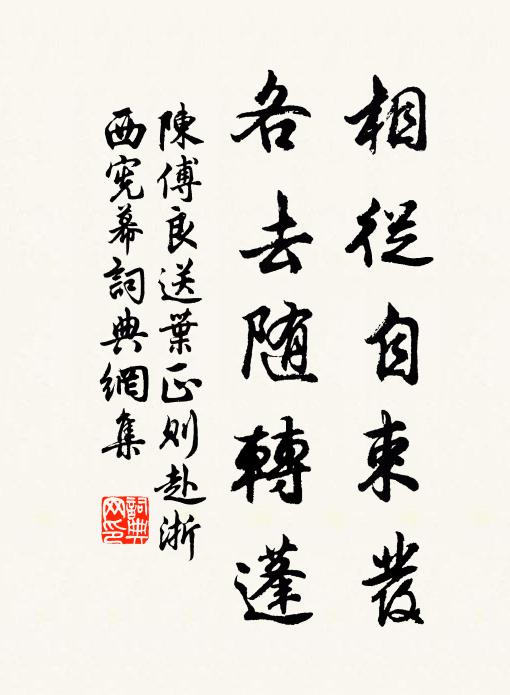 相從自束發
各去随轉蓬
陳傅良送葉正則赴浙
西宪幕詞典網集
詞典
网印